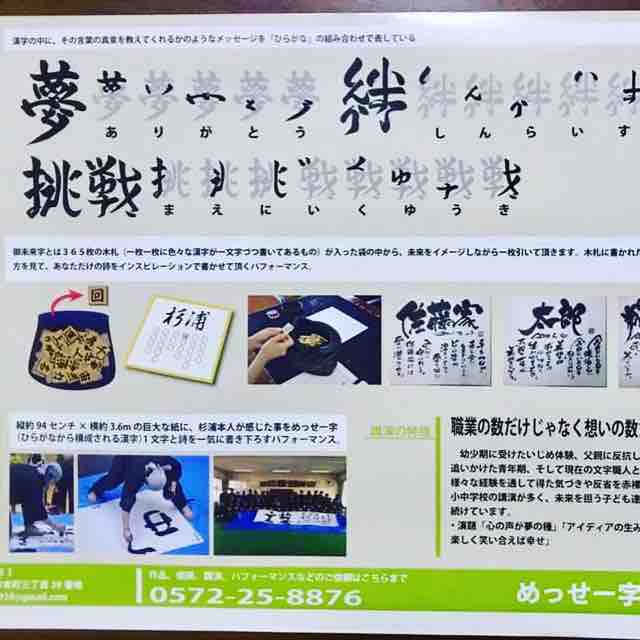 漢字の中に、その言葉の真意を教えてくれるかのようなメッセージを「ひらがな」の組み合わせで表している
夢 夢 夢 夢 夢 夢
ありがとう
絆 絆 絆 絆 絆
しんらいす
挑戦 挑 挑 挑 戦 戦 戦 戦 戦
まえにいくゆうき
御未来字とは365枚の木札(一枚一枚に色々な漢字が一文字づつ書いてあるもの)が入った袋の中から、未来をイメージしながら一枚引いて頂きます。木札に書かれた
方を見て、あなただけの詩をインスピレーションで書かせて頂くパフォーマンス。
回
杉浦
佐藤家
太郎
縦約94センチ×横約3.6mの巨大な紙に、杉浦本人が感じた事をめっせ一字
(ひらがなから構成される漢字)1文字と詩を一気に書き下ろすパフォーマンス。
講演の特徴
職業の数だけじゃなく想いの数
幼少期に受けたいじめ体験、父親に反抗し
追いかけた青年期、そして現在の文字職人と
様々な経験を通して得た気づきや反省を赤裸
小中学校の講演が多く、未来を担う子ども達
続けています。
・演題「心の声が夢の種」「アイディアの生み
楽しく笑い合えば幸せ」
町三丁目39番地
@gmail.com
作品、個展、講演、パフォーマンスなどのご依頼はこちらまで
0572-25-8876
めっせ一字